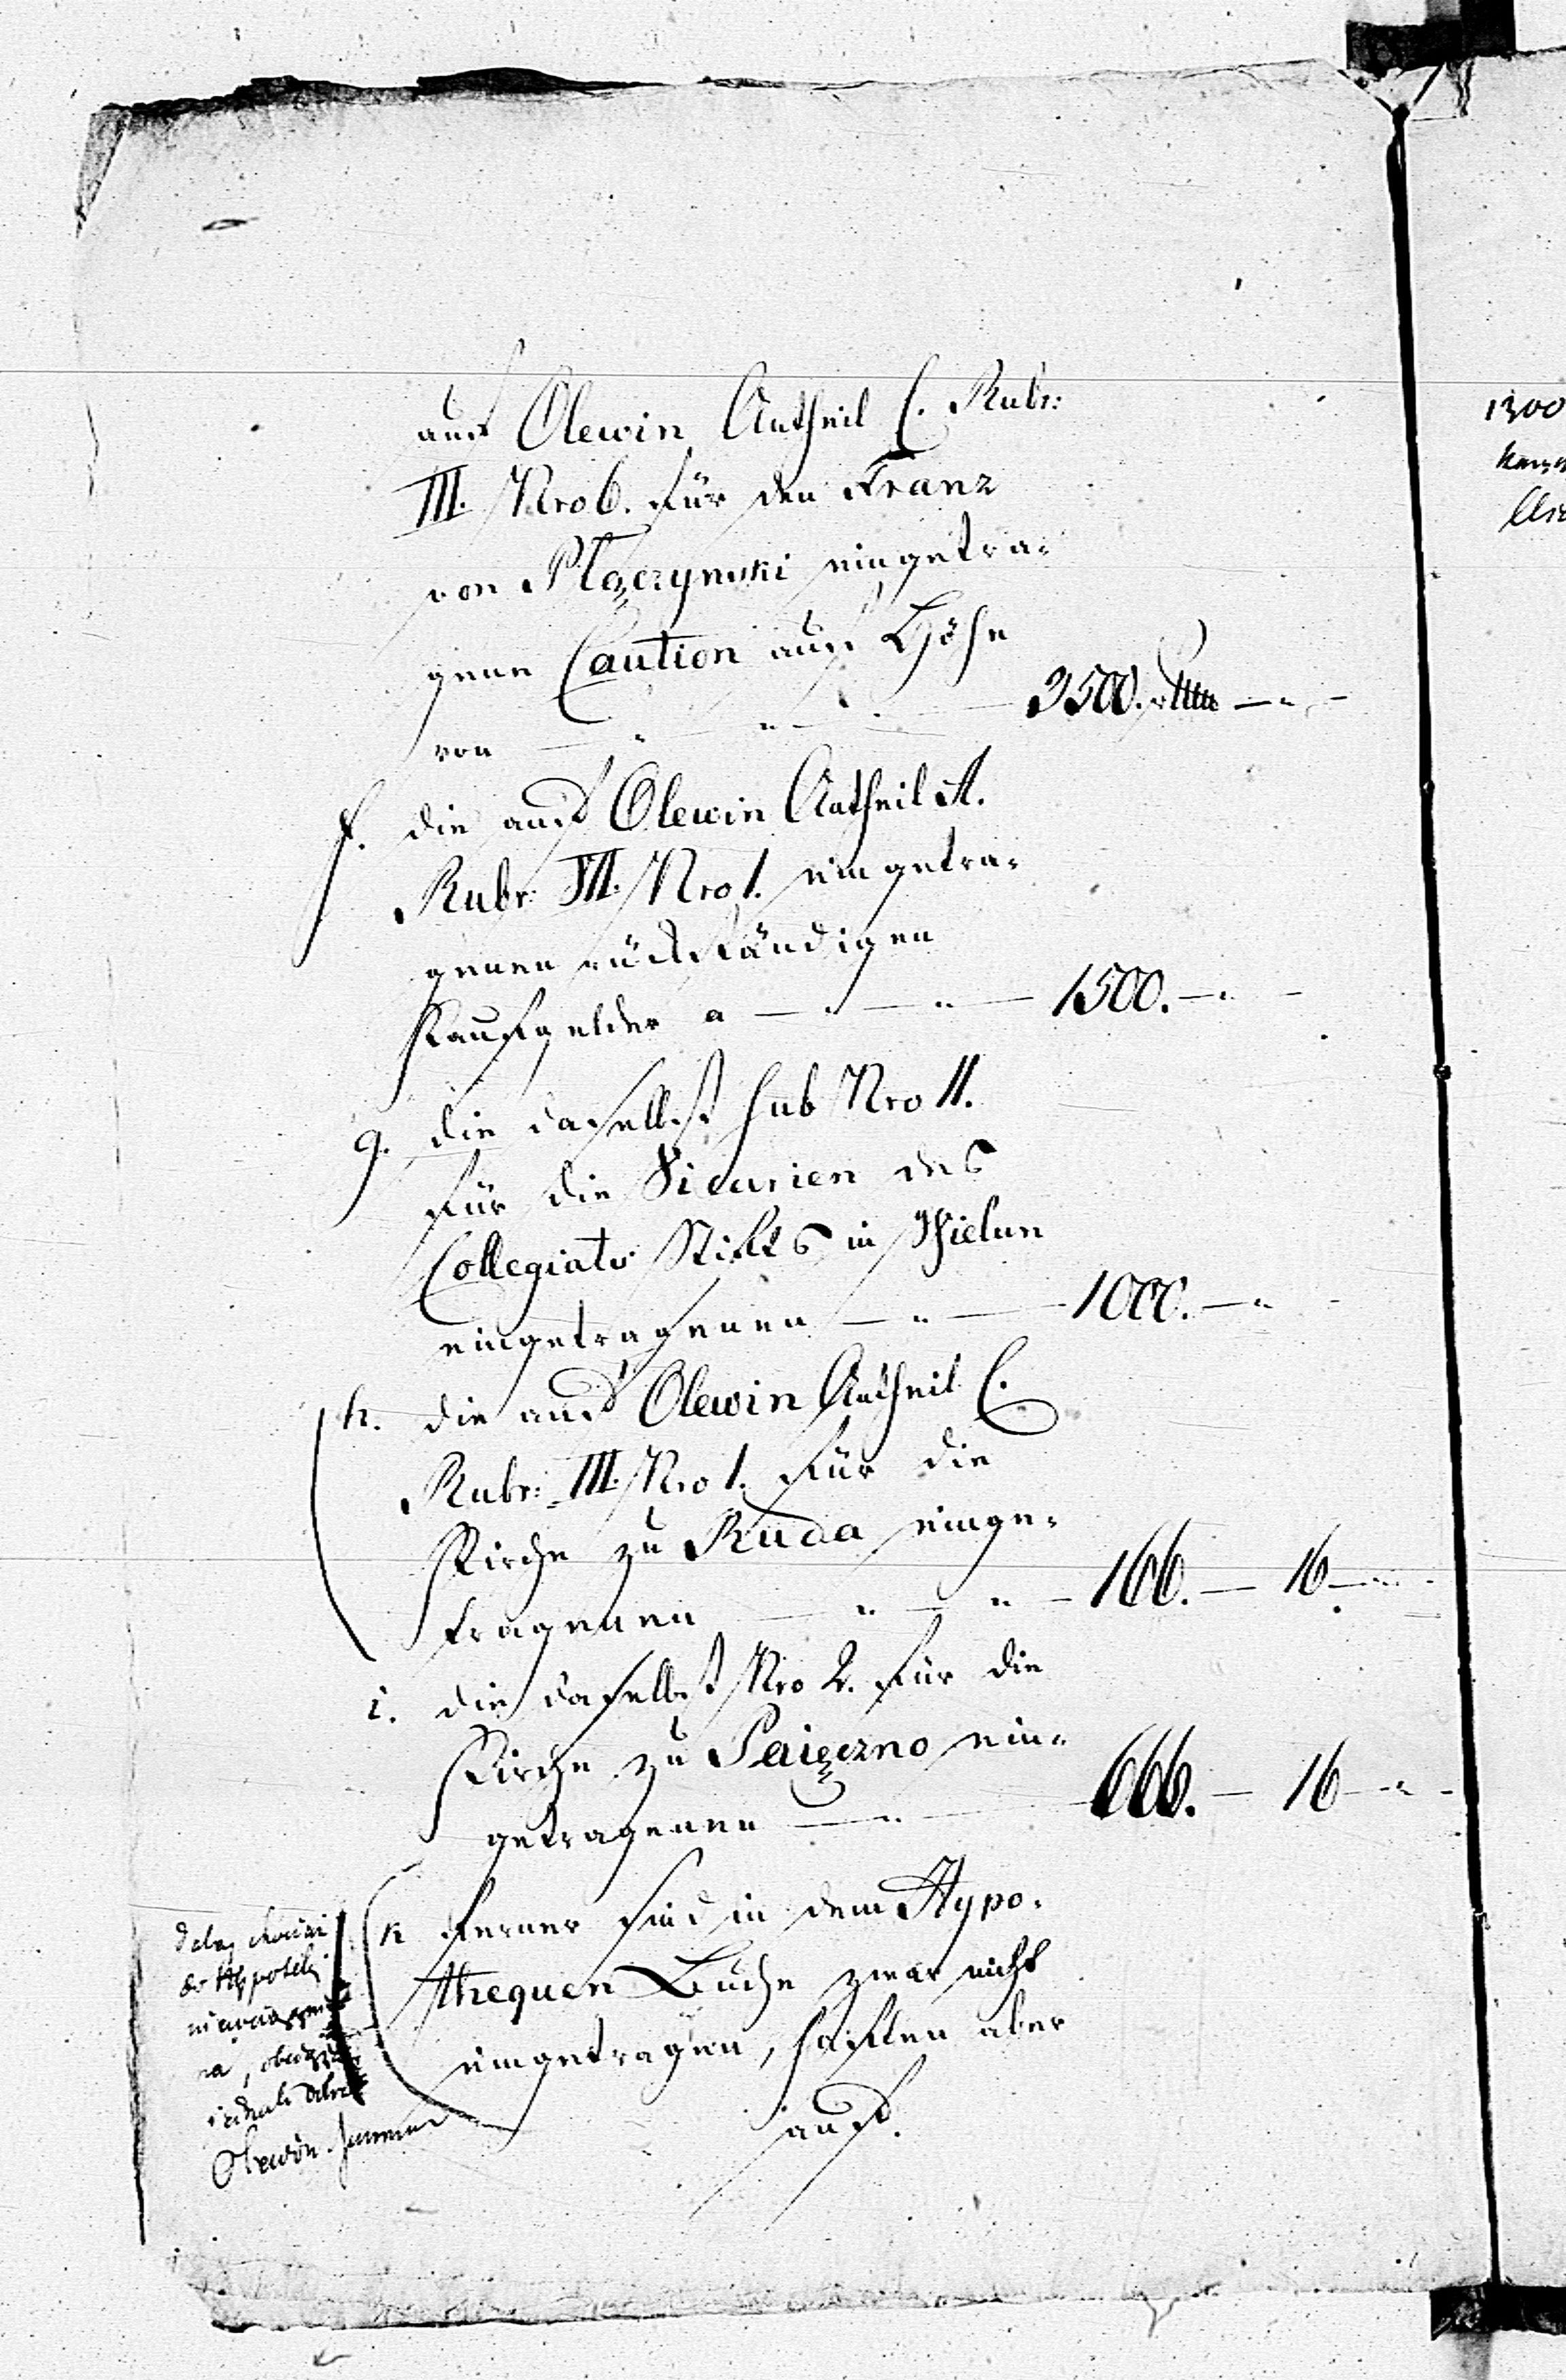 auf Olewin Antheil C. Rubr:
III. Nro 6. für den Franz
von Płączynski eingetra-
gene Caution auf Höhe
von — " — " — 3500. — " —
f. die auf Olewin Antheil A.
Rubr: III. Nro 1. eingetra-
genen rückständigen
Kaufgelder a — " — " — 1500. — " —
g. die daselbst sub Nro 11.
für die Vicarien des
Collegiat Stifts in Wielun
eingetragenen — " — 1000. — "
h. die auf Olewin Antheil C.
Rubr: III. Nro 1. für die
Kirche zu Ruda einge-
tragenen — " — " — 166. — 16 — "
i. die daselbst Nro 2. für die
Kirche zu Paięczno ein-
getragenen — " — 666. — 16 — " —
k ferner sind in dem Hypo-
thequen Buche zwar nicht
eingetragen, haften aber
auf.
Olewin
1300